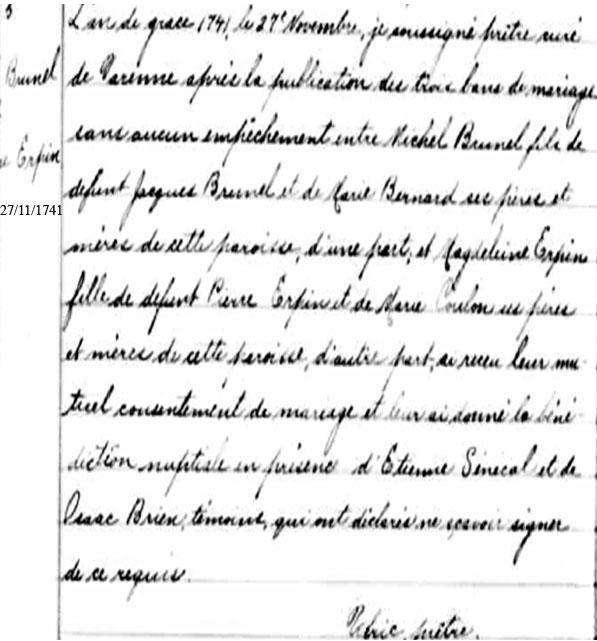 3
L'an de grace 1741, le 27e Novembre, je soussigné prêtre curé
Brunel
de Varenne après la publication des trois bans de mariage
sans aucun empêchement entre Michel Brunel fils de
Erpin
defunt Jacques Brunel et de Marie Bernard ses pères et
27/11/1741
mères de cette paroisse, d'une part, et Magdeleine Erpin
fille de defunt Pierre Erpin et de Marie Coulon ses pères
et mères de cette paroisse, d'autre part, ai receu leur mu-
tuel consentement de mariage et leur ai donné la béné-
diction nuptiale en présence d'Etienne Sénécal et de
Isaac Brien, témoins, qui ont déclarés ne sçavoir signer
de ce requis.
prêtre.